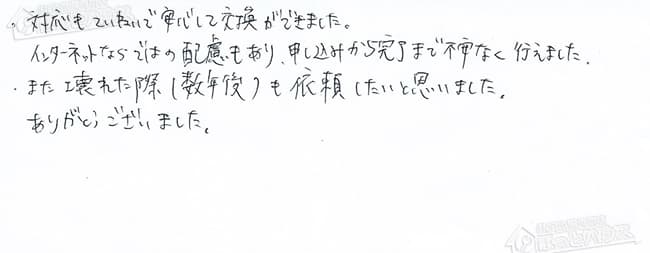 ・対応もていねいで安心して交換ができました。
インターネットならではの配慮もあり、申し込みから完了まで不安なく行えました。
・また壊れた際(数年後)も依頼したいと思いました。
ありがとうございました。